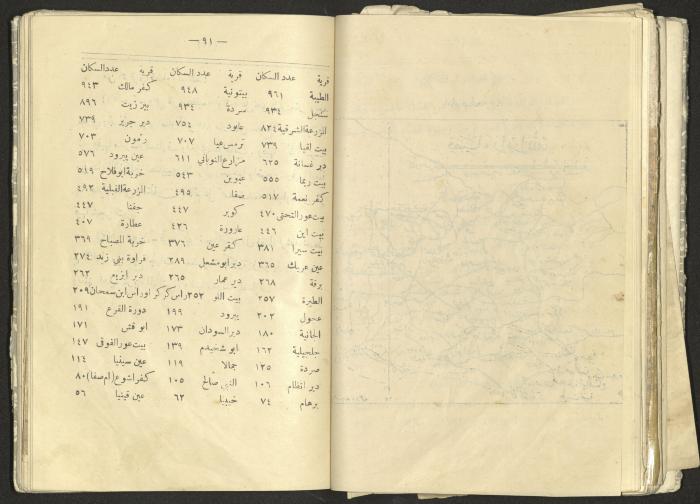 — ٩١ —
قرية عدد السكان قرية عدد السكان قرية عدد السكان
الطيبة ٩٦١ بيتونية ٩٤٨ كفر مالك ٩٤٣
سنجل ٩٣٤ سردة ٩٣٤ بير زيت ٨٩٦
المزرعة الشرقية ٨٢٤ عابود ٧٥٤ دير جرير ٧٣٩
بيت لقيا ٧٣٩ ترمسعيا ٧٠٧ رمون ٧٠٣
در غسانة ٦٢٥ مزارع النوباني ٦١١ عين يبرود ٥٧٦
بيت ريما ٥٥٥ عبوين ٥٤٣ خربة ابو فلاح ٥١٩
كفر نعمة ٥١٧ صفا ٤٩٥ المزرعة القبلية ٤٩٢
بيت عور التحتى ٤٧٠ كوبر ٤٤٧ جفنا ٤٤٧
بيت اين ٤٤٦ عارورة ٤٢٦ عطارة ٤٠٧
بيت سيرا ٣٨١ كفر عين ٣٧٦ خربة المصباح ٣٦٩
عين عريك ٣٦٥ دير ابو مشعل ٢٨٩ قراوة بني زيد ٢٧٤
برقة ٢٦٨ دير عمار ٢٦٥ دير ابزيع ٢٦٢
الطيرة ٢٥٧ بيت اللو ٢٥٢ راس كركر اوراس ابن سمحان ٢٠٩
عجول ٢٠٢ يبرود ١٩٩ دورة القرع ١٩١
الجانية ١٨٠ دير السودان ١٧٣ ابو قش ١٧١
جلجيلية ١٦٢ ابو شخيدم ١٣٩ بيت عور الفوقى ١٤٧
صردة ١٢٥ جمالا ١١٩ عين سينيا ١١٤
دير انظام ١٠٦ النبي صالح ١٠٥ كفر اشوع (ام صفا) ٨٠
برهام ٧٤ خبيبا ٦٢ عين قينيا ٥٦